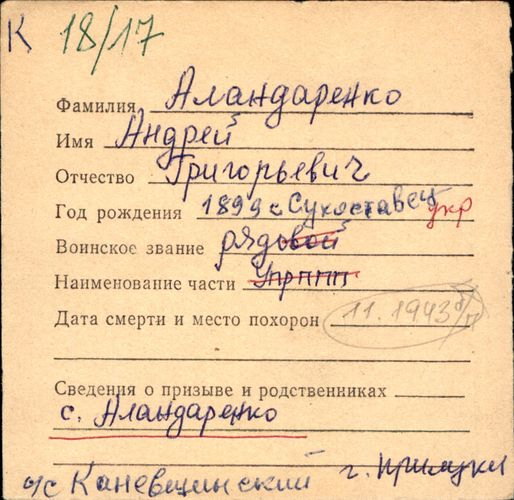 К 18/17
Фамилия Аландаренко
Имя Андрей
Отчество Григорьевич
Год рождения 1899 с Сухоставец укр
Воинское звание рядовой
Наименование части
Дата смерти и место похорон 11.1943 б/п
Сведения о призыве и родственниках
с. Аландаренко
о/с Каневщинский г. Прилуки